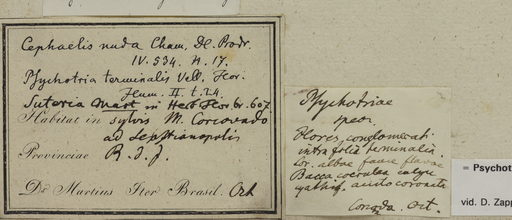 Cephaelis nuda Cham. De. Prodr.
IV. 534. n. 17.
Psychotria terminalis Vell. Flor.
Flum. II. t. 24.
Suteria Mart in Herb Flor br. 607
Habitat in sylvis M. Corcovado
ad Sebastianopolis
Provinciae R. d. J.
Dr Martius Iter Brasil. Oct
Psychotriae
spec.
Flores conglomerati
intra folia terminalia
Cor. albae fauce flavae
Bacca coerulea calyce
cyathif. coronata
Corcova. Oct.
= Psychot
vid. D. Zapp